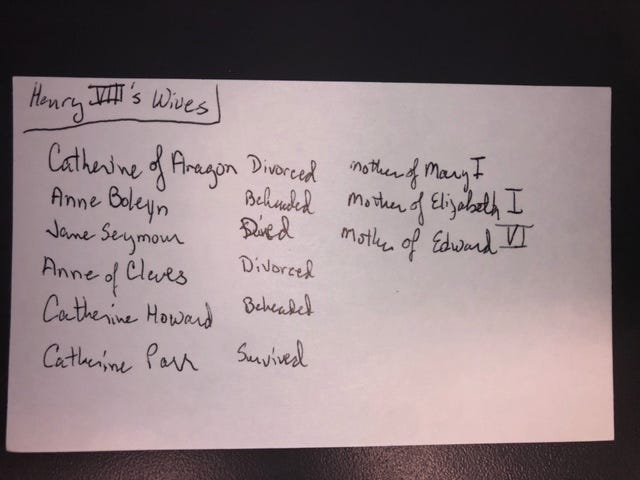 Henry VIII's Wives
Catherine of Aragon Divorced mother of Mary I
Anne Boleyn Beheaded Mother of Elizabeth I
Jane Seymour Died Mother of Edward VI
Anne of Cleves Divorced
Catherine Howard Beheaded
Catherine Parr Survived